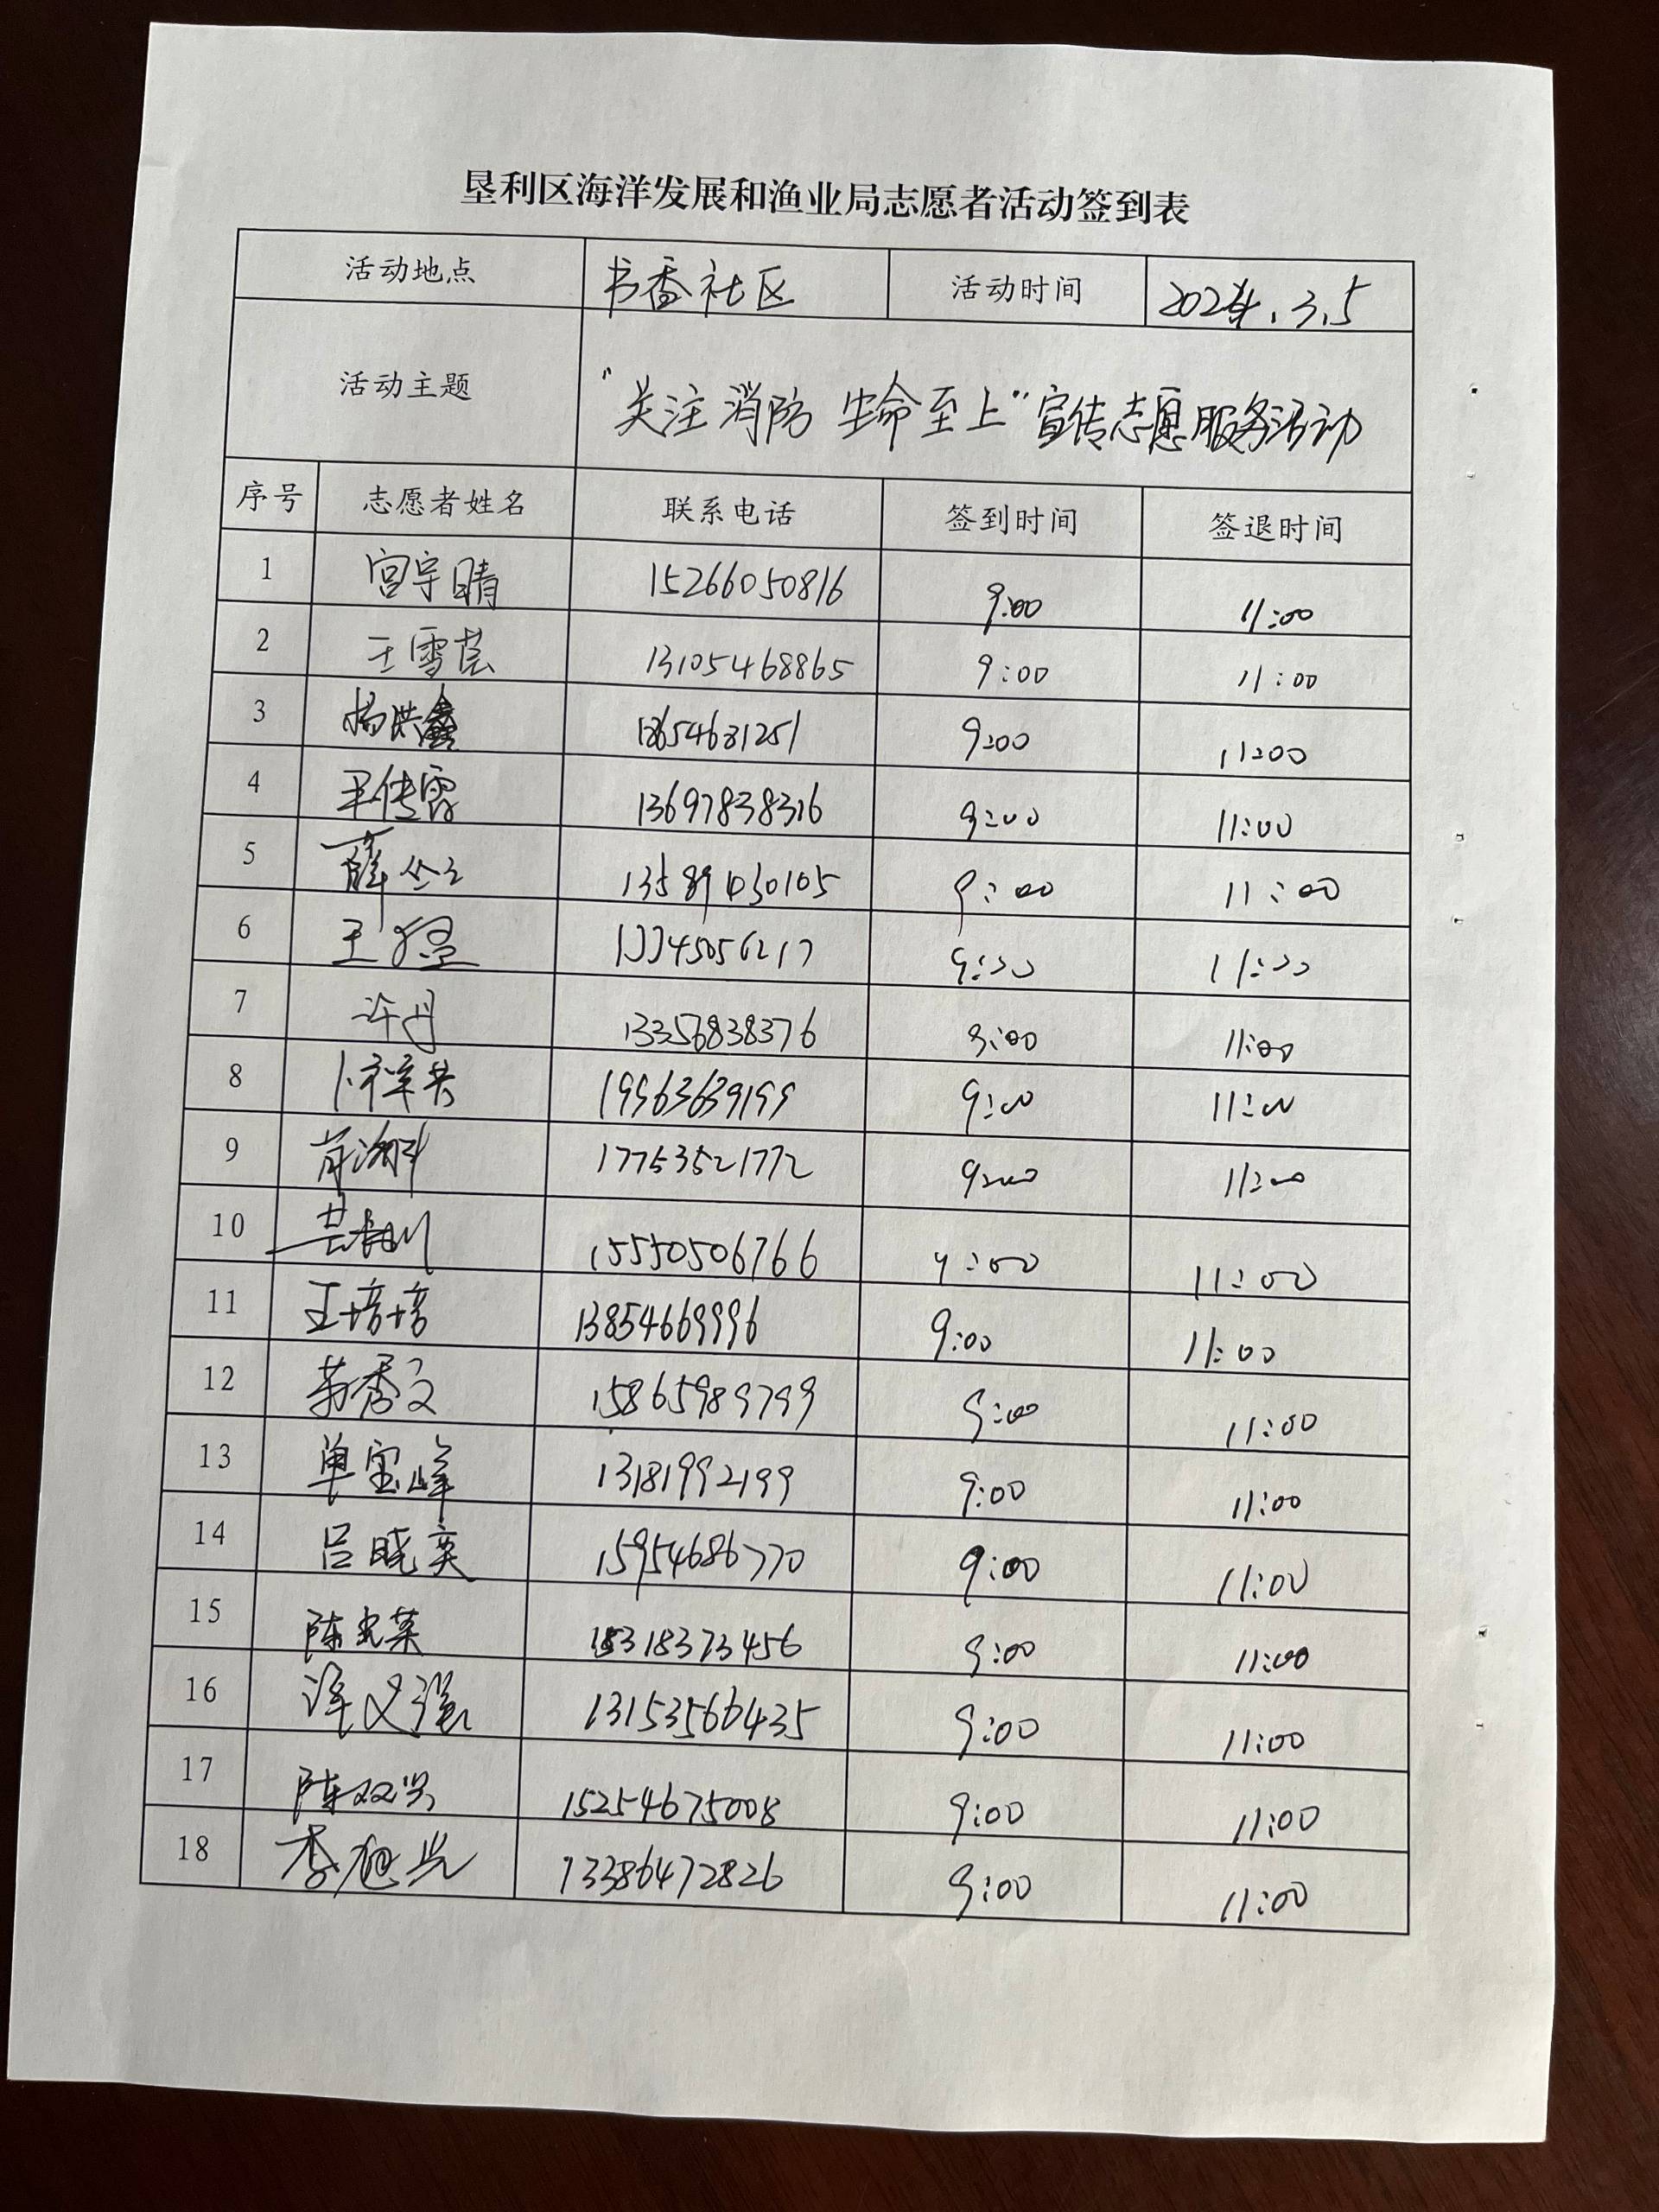 垦利区海洋发展和渔业局志愿者活动签到表
活动地点 书香社区 活动时间 2024.3.5
活动主题 “关注消防 生命至上”宣传志愿服务活动
序号 志愿者姓名 联系电话 签到时间 签退时间
1 宫宇晴 15266050816 9:00 11:00
2 王雪莹 13105468865 9:00 11:00
3 杨洪鑫 18654681251 9:00 11:00
4 13697838316 9:00 11:00
5 薛 13589030105 9:00 11:00
6 王 9:00 11:00
7 许丹 13356838376 9:00 11:00
8 19963639199 9:00 11:00
9 17753521772 9:00 11:00
10 15550506766 9:00 11:00
11 王培培 13854669996 9:00 11:00
12 15865989799 9:00 11:00
13 单宝峰 13181992199 9:00 11:00
14 吕晓奕 15954686770 9:00 11:00
15 陈 9:00 11:00
16 13153566435 9:00 11:00
17 陈双兴 15254675008 9:00 11:00
18 李旭光 13386472826 9:00 11:00